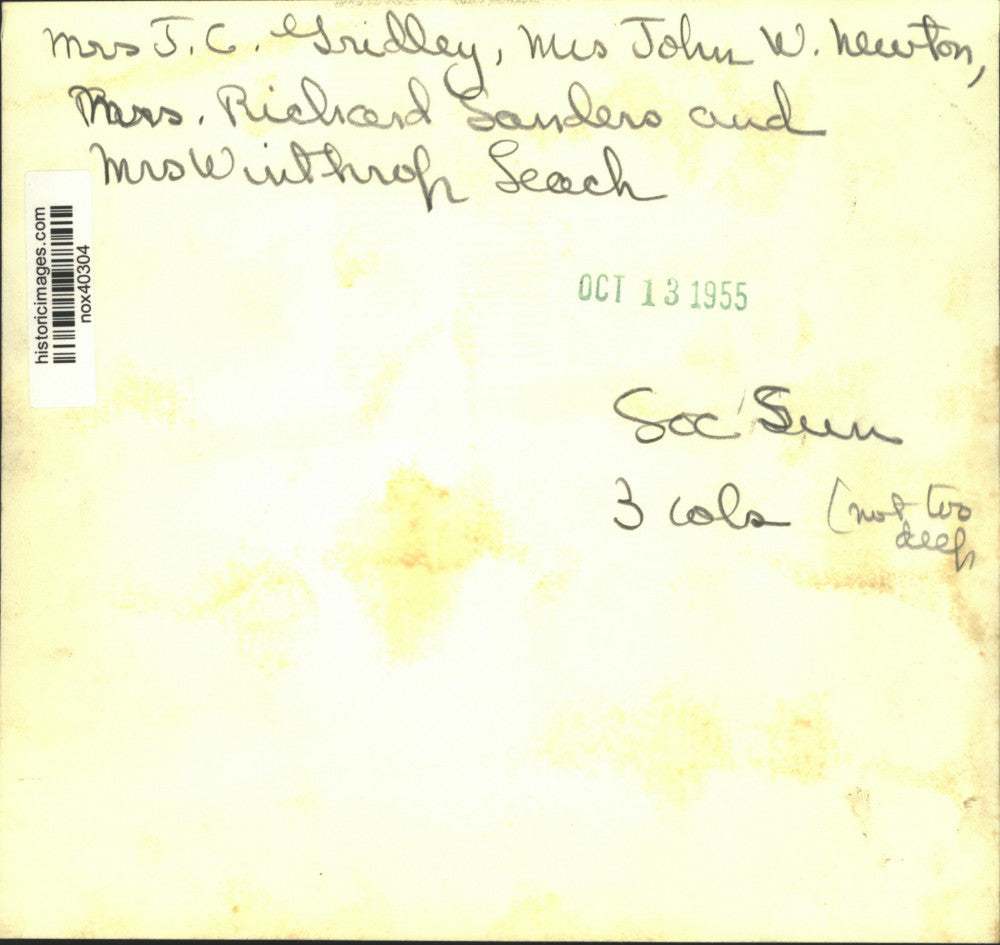 Mrs J. C. Gridley, Mrs John W. Newton,
Mrs. Richard Sanders and
Mrs Winthrop Leach
historicimages.com
nox40304
OCT 13 1955
Soc Sun
3 cols (not too
deep